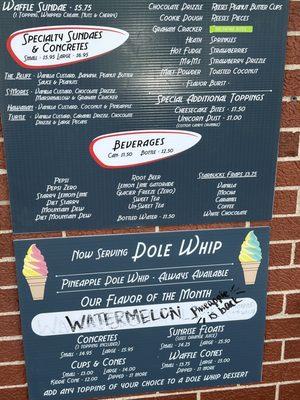 Waffle Sundae - $5.75
(1 Topping, Whipped Cream, Nuts & Cherry)
Specialty Sundaes
& Concretes
Small - $5.95 Large - $6.95
The Bluff - Vanilla Custard, Banana, Peanut Butter
Sauce & Peanuts
S'Mores - Vanilla Custard, Chocolate Drizzle,
Marshmallow & Graham Cracker
Hawaiian - Vanilla Custard, Coconut & Pineapple
Turtle - Vanilla Custard, Caramel Drizzle, Chocolate
Drizzle & Large Pecans
Chocolate Drizzle Reeses Peanut Butter Cups
Cookie Dough Reeses Pieces
Graham Cracker
Heath Sprinkles
Hot Fudge Strawberries
M&Ms Strawberry Drizzle
Malt Powder Toasted Coconut
Flavor Burst
Special Additional Toppings
Cheesecake Bites - $1.50
Unicorn Dust - $1.00
(Cotton Candy Crumbs)
Beverages
Can - $1.50 Bottle - $2.50
Pepsi
Pepsi Zero
Starry Lemon-Lime
Diet Starry
Mountain Dew
Diet Mountain Dew
Root Beer
Lemon Lime Gatorade
Glacier Freeze (Zero)
Sweet Tea
Un-Sweet Tea
Bottled Water - $1.50
Starbucks Fraps $3.75
Vanilla
Mocha
Caramel
Coffee
White Chocolate
Now Serving Dole Whip
Pineapple Dole Whip - Always Available
Our Flavor of the Month
WATERMELON
Pineapple
is back
Concretes
(1 Topping Included)
Small - $4.95 Large - $5.95
Cups & Cones
Small - $3.00 Large - $4.00
Kiddie Cone - $2.00 Dipped - $1 more
Sunrise Floats
Small - $4.25 Large - $5.50
Waffle Cones
Small - $4.00 Large - $5.00
Dipped - $1 more
Add any topping of your choice to a Dole Whip dessert